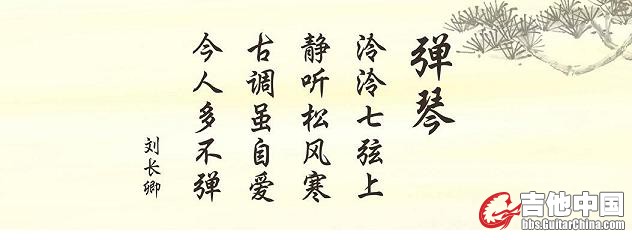 弹琴
泠泠七弦上
静听松风寒
古调虽自爱
今人多不弹
刘长卿
吉他中国
bbs.GuitarChina.com